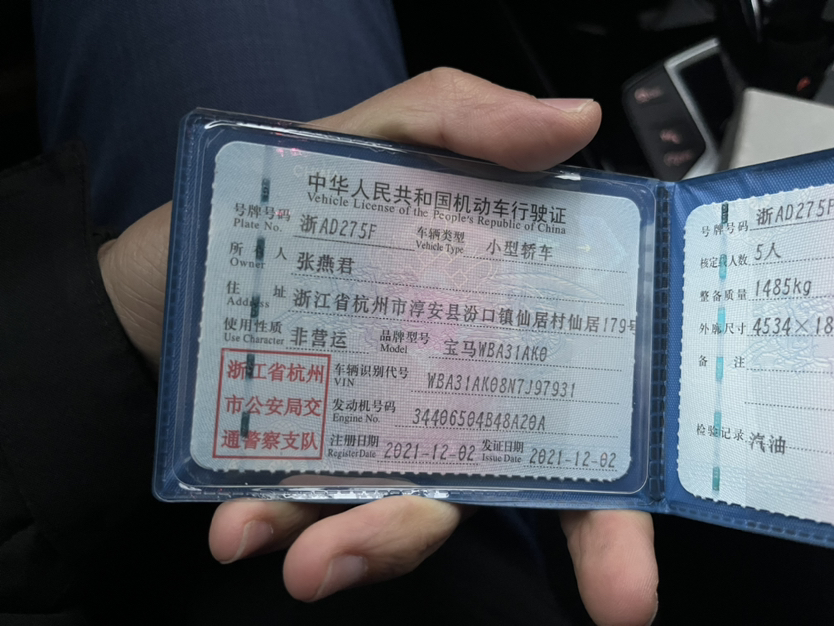 中华人民共和国机动车行驶证
Vehicle License of the People's Republic of China
号牌号码 浙AD275F 车辆类型 小型轿车
Plate No. Vehicle Type
所有人 张燕君
Owner
住址 浙江省杭州市淳安县汾口镇仙居村仙居179号
Address
使用性质 非营运 品牌型号 宝马WBA31AK0
Use Character Model
浙江省杭州
市公安局交
通警察支队
车辆识别代号 WBA31AK08N7J97931
VIN
发动机号码 34406504B48A20A
Engine No.
注册日期 2021-12-02 发证日期 2021-12-02
Register Date Issue Date
号牌号码 浙AD275F
核定载人数 5人
整备质量 1485kg
外廓尺寸 4534×18
备注
检验记录 汽油